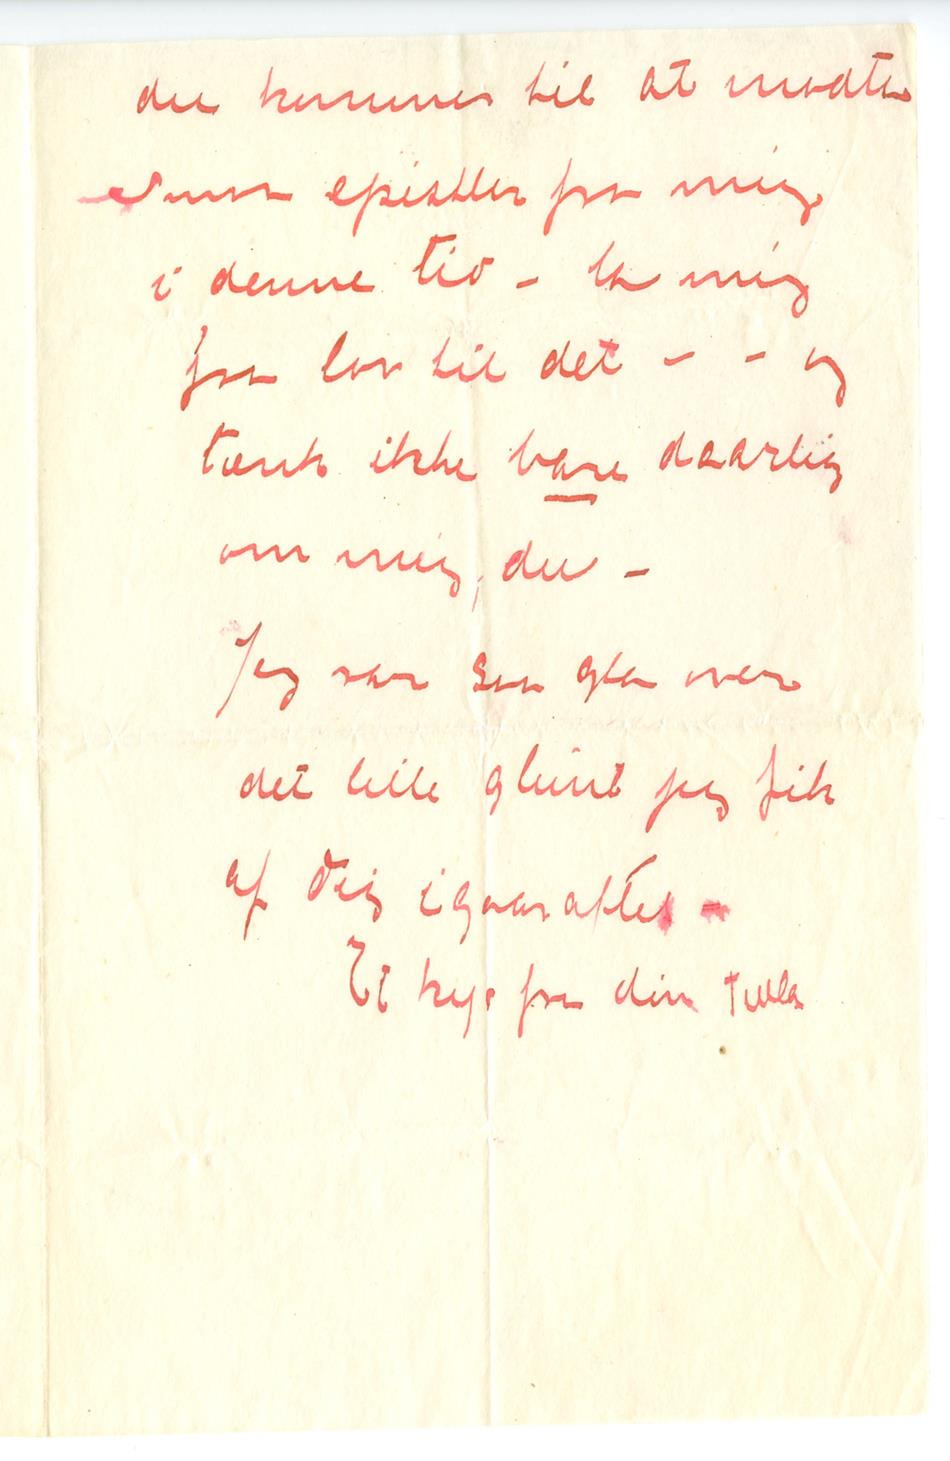 du kommer til at modta
epistler fra mig
i denne tid - la mig
faa lov til det - - og
tænk ikke bare daarlig
om mig, du -
Jeg var saa gla over
det lille glimt jeg fik
af dig igaaraftes -
Et kys fra din Tulla